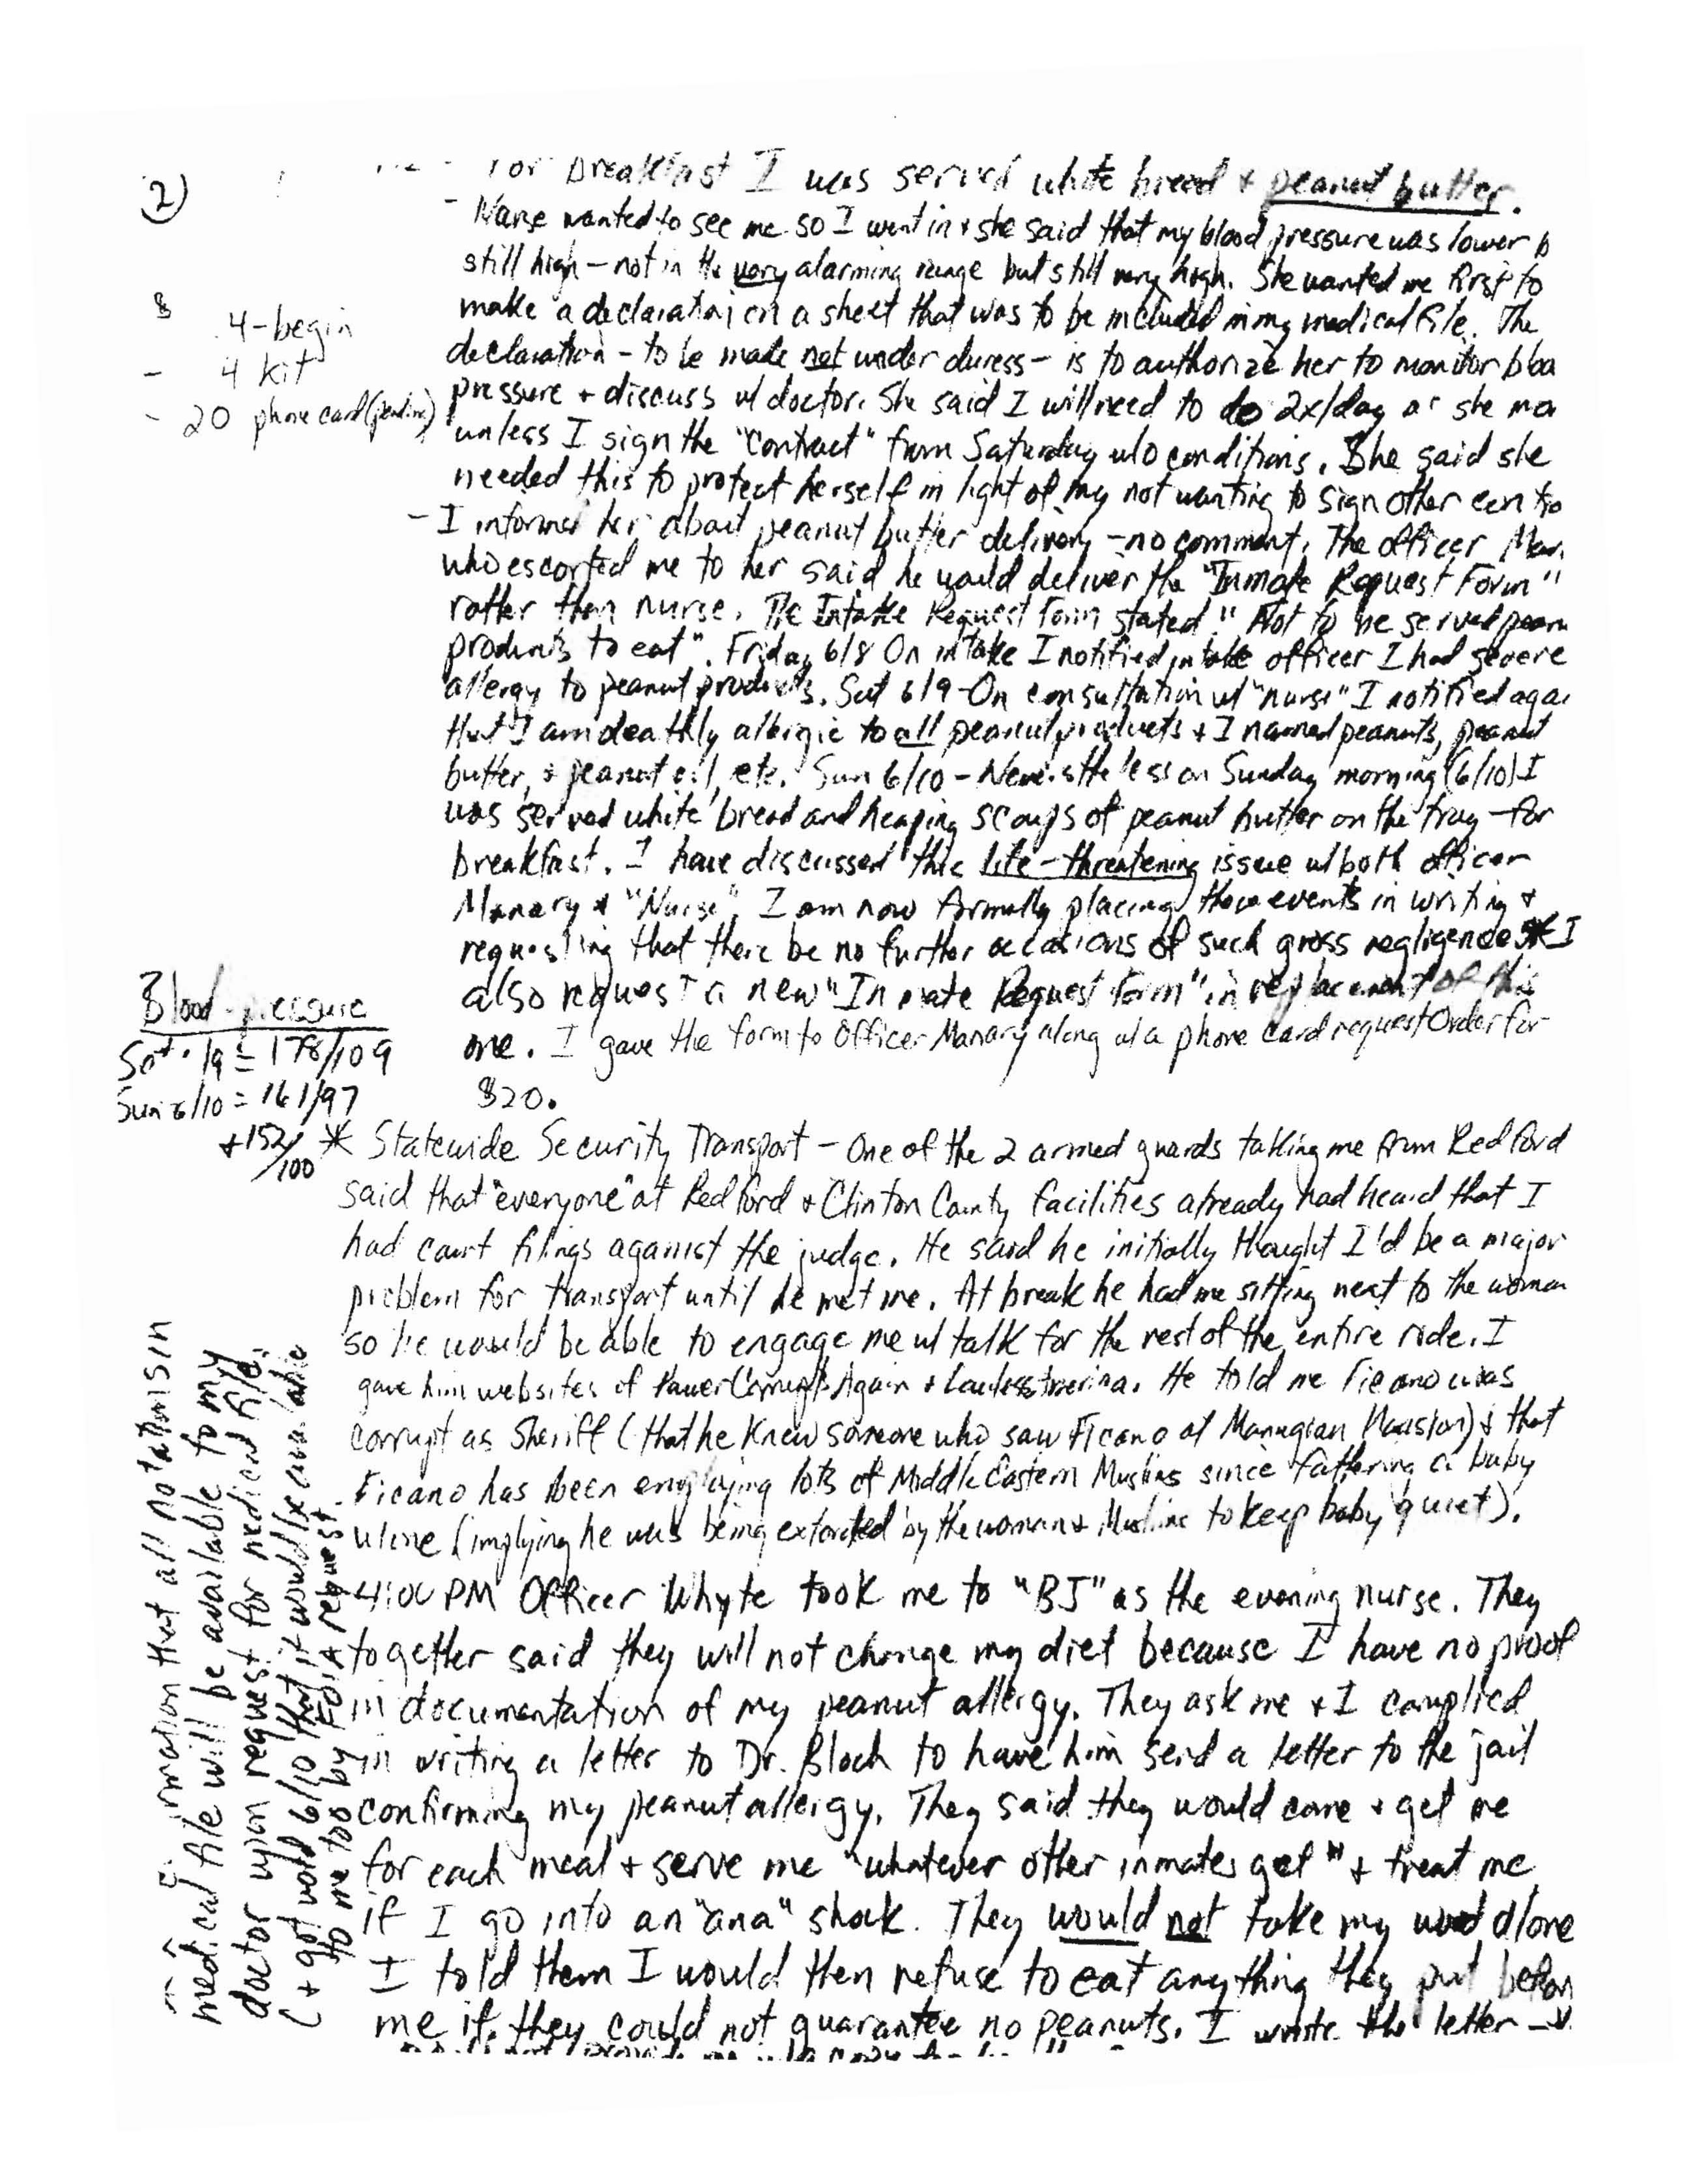 2)
For breakfast I was served white bread + peanut butter.
- Nurse wanted to see me so I went in + she said that my blood pressure was lower b
still high - not in the very alarming range but still very high. She wanted me first to
make a declaration on a sheet that was to be included in my medical file. The
declaration - to be made not under duress - is to authorize her to monitor bloo
pressure + discuss w/ doctor. She said I will need to do 2x/day or she
unless I sign the "contract" from Saturday w/o conditions. She said she
needed this to protect herself in light of my not wanting to sign other
- I informed her about peanut butter delivery - no comment. The officer Man
who escorted me to her said he would deliver the "Inmate Request Form"
rather than nurse. The Intake Request Form stated "Not to be served pean
products to eat". Friday 6/8 On intake I notified intake officer I had severe
allergy to peanut products. Sat 6/9 - On consultation w/ "nurse" I notified aga
that I am deathly allergic to all peanut products + I named peanuts, peanut
butter, + peanut oil, etc. Sun 6/10 - Nevertheless on Sunday morning (6/10) I
was served white bread and heaping scoops of peanut butter on the tray - for
breakfast. I have discussed this life-threatening issue w/ both officer
Manary + "Nurse". I am now formally placing these events in writing +
requesting that there be no further occasions of such gross negligence * I
also request a new "Inmate Request Form" in replacement of this
one. I gave the form to Officer Manary along w/ a phone card request Order for
$20.
$ 4-begin
- 4 kit
- 20 phone card (pending)
Blood pressure
Sat. /9 = 178/109
Sun 6/10 = 161/97
+152/100
* Statewide Security Transport - One of the 2 armed guards taking me from Redford
said that "everyone" at Redford + Clinton County facilities already had heard that I
had court filings against the judge. He said he initially thought I'd be a major
problem for transport until he met me. At break he had me sitting next to the woman
so he would be able to engage me w/ talk for the rest of the entire ride. I
gave him websites of PowerCorruptsAgain + LawlessAmerica. He told me Ficano was
corrupt as Sheriff (that he knew someone who saw Ficano at Manugian Mansion) + that
Ficano has been employing lots of Middle Eastern Muslims since fathering a baby
w/one (implying he was being extorted by the woman + Muslims to keep baby quiet).
4:00 PM Officer Whyte took me to "BJ" as the evening nurse. They
together said they will not change my diet because I have no proof
in documentation of my peanut allergy. They ask me + I complied
in writing a letter to Dr. Bloch to have him send a letter to the jail
confirming my peanut allergy. They said they would come + get me
for each meal + serve me "whatever other inmates get" + treat me
if I go into an "ana" shock. They would not take my word alone
I told them I would then refuse to eat anything they put before
me if they could not guarantee no peanuts. I wrote the letter →
that all notations in
medical file will be available to my
doctor upon request for medical file.
(+ got word 6/10 that it would be available
to me too by FOIA request.